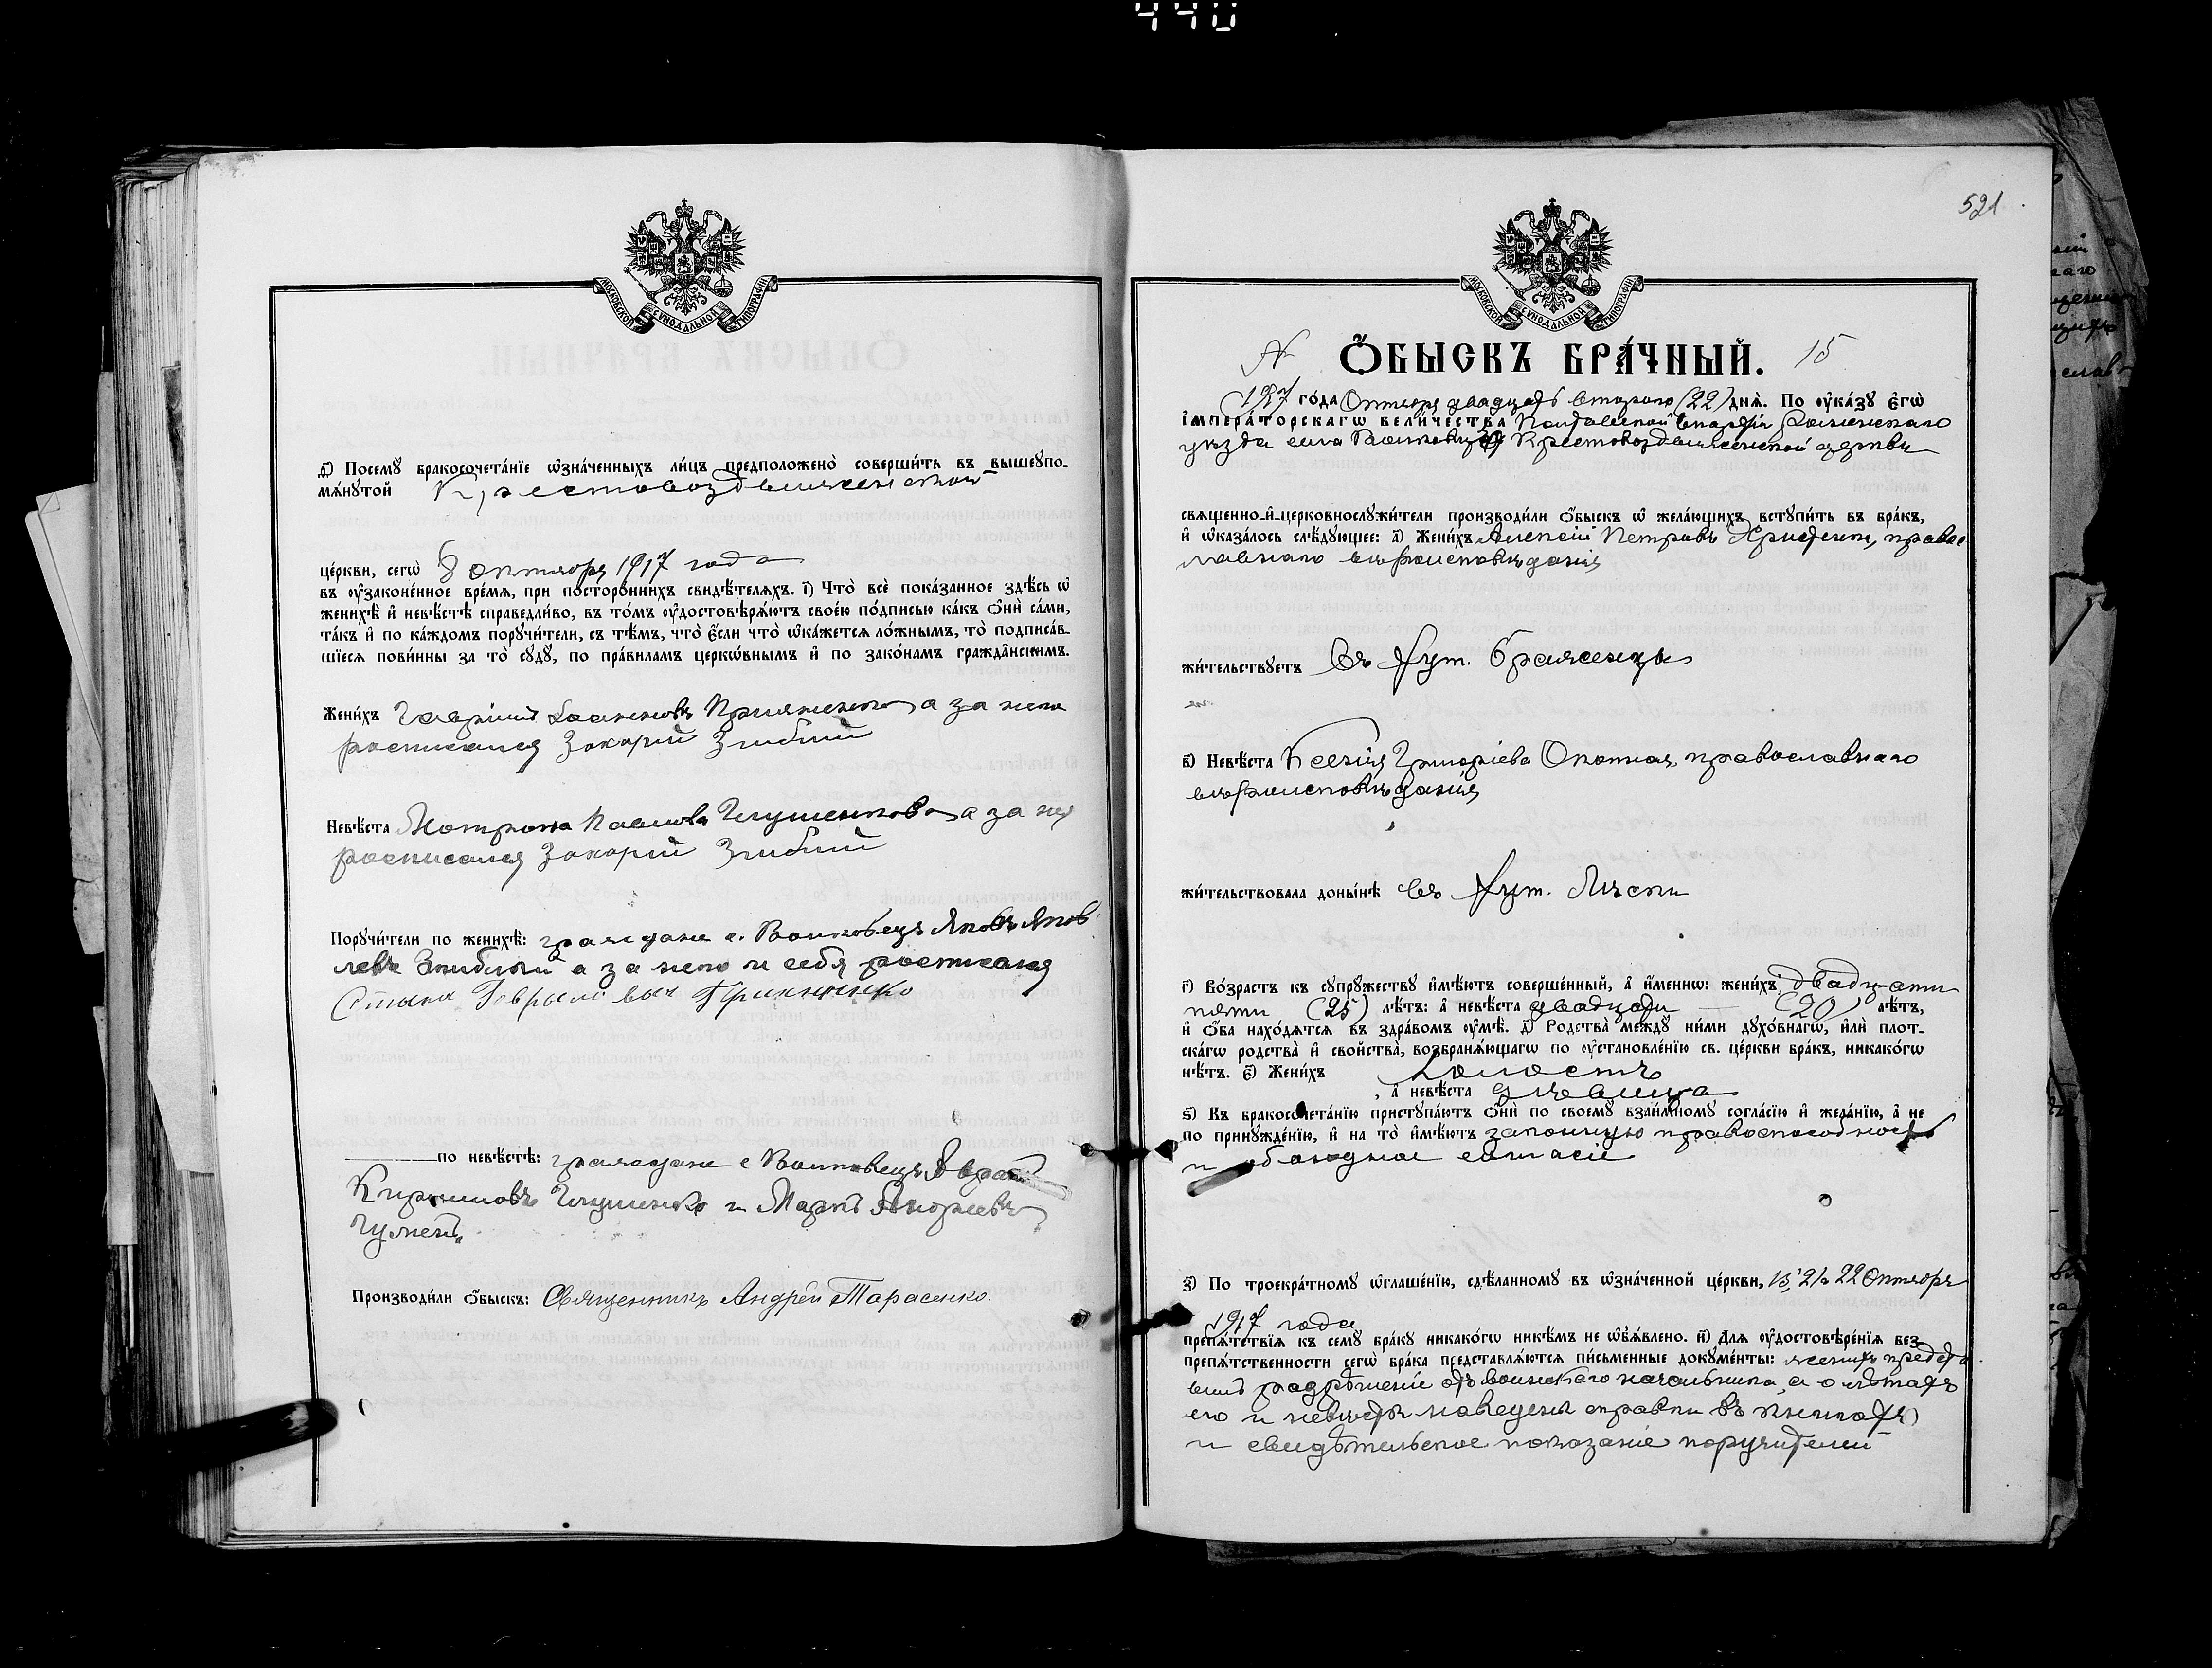 440
МОСКОВСКОЙ СУНОДАЛЬНОЙ ТИПОГРАФІИ
д҃) Посемꙋ бракосочета́нїе ѡ҆зна́ченныхъ ли́цъ предположено̀ соверши́ть въ вышеꙋпо-
мѧ́нꙋтой Крестовоздвиженской
це́ркви, сегѡ̀ 8 октября 1917 года
въ ᲂу҆зако́ненное вре́мѧ, при посторо́ннихъ свидѣ́телѧхъ. і҃) Что̀ всѐ пока́занное здѣ́сь ѡ҆
женихѣ̀ и҆ невѣ́стѣ справедли́во, въ то́мъ ᲂу҆достовѣрѧ́ютъ свое́ю по́дписью ка́къ ѻ҆нѝ са́ми,
та́къ и҆ по ка́ждомъ порꙋчи́тели, съ тѣ́мъ, что̀ є҆́сли что̀ ѡ҆ка́жетсѧ ло́жнымъ, то̀ подписа́в-
шїесѧ пови́нны за то̀ сꙋдꙋ̀, по пра́виламъ церкѡ́внымъ и҆ по зако́намъ гражда̂нскимъ.
Жени́хъ Гавріилъ Іоанновъ а за него
росписался Захарій
Невѣ́ста Мотрона Павлова Глущенкова а за нея
росписался Захарій
Порꙋчи́тели по женихѣ̀: граждане с. Волковецъ Яковъ Яков
левъ а за него и себя росписался
по невѣ́стѣ: граждане с Волковецъ
Кирилловъ Глущенко и Маркъ
Производи́ли ѻ҆́быскъ: Священникъ Андрей Тарасенко.
521
МОСКОВСКОЙ СУНОДАЛЬНОЙ ТИПОГРАФІИ
№ Ѻ҆́БЫСКЪ БРА́ЧНЫЙ. 15
1917 го́да Октября двадцать второго (22) днѧ̀. По ᲂу҆ка́зꙋ є҆гѡ̀
і҆мпера́торскагѡ вели́чества Полтавской епархіи Роменскаго
уѣзда села Волковецъ Крестовоздвиженской церкви
свѧщенно-и҆-церковнослꙋжи́тели производи́ли ѻ҆́быскъ ѡ҆ жела́ющихъ встꙋпи́ть въ бра́къ,
и҆ ѡ҆каза́лось слѣ́дꙋющее: а҃) Жени́хъ Алексій Петровъ православ
славнаго вѣроисповѣданія
жи́тельствꙋетъ въ хут. Браженцы
в҃) Невѣ́ста Ксенія Григоріева православнаго
вѣроисповѣданія
жи́тельствовала доны́нѣ въ хут. Лиски
г҃) Во́зрастъ къ сꙋпрꙋ́жествꙋ и҆мѣ́ютъ соверше́нный, а҆ и҆́менно: жени́хъ двадцати
пяти (25) лѣ́тъ: а҆ невѣ́ста двадцати (20) лѣ́тъ,
и҆ ѻ҆́ба нахо́дѧтсѧ въ здра́вомъ ᲂу҆мѣ̀. д҃) Родства̀ ме́ждꙋ ни́ми дꙋхо́внагѡ, и҆лѝ плот-
ска́гѡ родства̀ и҆ сво́йства, возбранѧ́ющагѡ по ᲂу҆становле́нїю св. це́ркви бра́къ, никако́гѡ
нѣ́тъ. є҃) Жени́хъ холостъ
, а҆ невѣ́ста дѣвица
ѕ҃) Къ бракосочета́нїю пристꙋпа́ютъ ѻ҆нѝ по своемꙋ̀ взаи́мномꙋ согла́сїю и҆ жела́нїю, а҆ не
по принꙋжде́нїю, и҆ на то̀ и҆мѣ́ютъ законную правоспособность
и обоюдное согласіе
з҃) По троекра́тномꙋ ѡ҆глаше́нїю, сдѣ́ланномꙋ въ ѡ҆зна́ченной це́ркви, 15, 21 и 22 Октября
1917 года
препѧ́тствїѧ къ семꙋ̀ бра́кꙋ никако́гѡ никѣ́мъ не ѡ҆б̾ѧ́влено. и҃) Длѧ ᲂу҆достовѣре́нїѧ без
препѧ́тственности сегѡ̀ бра́ка представлѧ́ютсѧ пи́сьменные докꙋме́нты: женихъ предста
вилъ разрѣшеніе отъ воинскаго начальника, а о лѣтахъ
его и невѣсты наведены справки въ книгахъ
и свидѣтельское показаніе поручителей